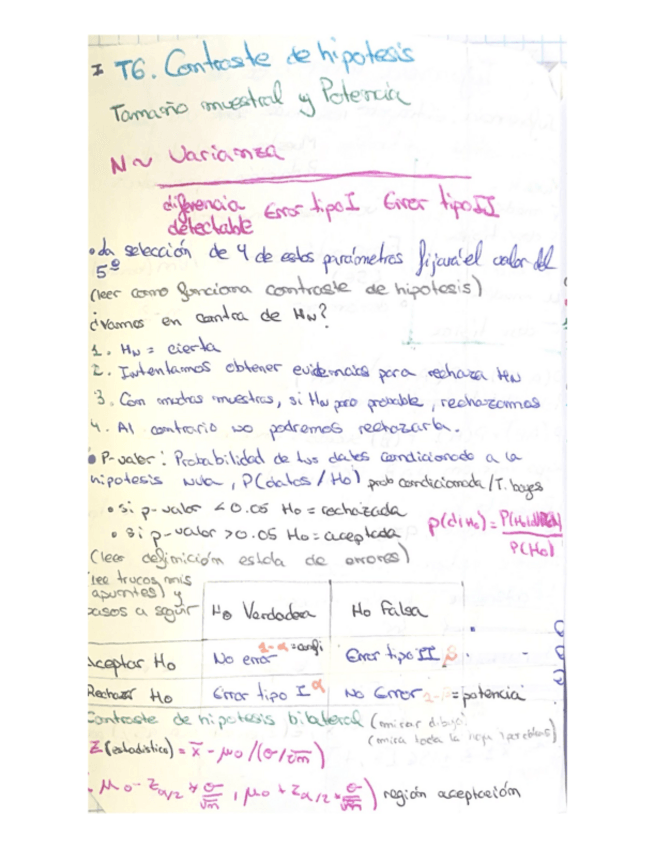 I T6. Contraste de hipotesis
Tamaño muestral y Potencia
N ~ Varianza
diferencia detectable Error tipo I Error tipo II
• La selección de 4 de estos parámetros fijará el valor del
5º
(leer como funciona contraste de hipotesis)
¿Vamos en contra de HN?
1. HN = cierta
2. Intentamos obtener evidencias para rechaza HN
3. Con muchas muestras, si HN poco probable, rechazamos
4. Al contrario no podremos rechazarla.
• P-valor: Probabilidad de tus datos condicionado a la
hipotesis nula, P(datos/H0) prob condicionada/T. bayes
• si p-valor < 0.05 H0 = rechazada
• si p-valor > 0.05 H0 = aceptada
p(d|H0) =
P(H0)
(leer definición estda de errores)
lee trucos mis
apuntes) y
pasos a seguir
H0 Verdadera H0 Falsa
Aceptar H0 No error 1-α = confi Error tipo II β
Rechazar H0 Error tipo I α No Error = potencia
Contraste de hipotesis bilateral (mirar dibujo)
(mira toda la hoja
Z (estadistico) = x̄ - μ0 /(σ/√n)
μ0 - Zα/2 * σ/√n , μ0 + Zα/2 * σ/√n) región aceptación